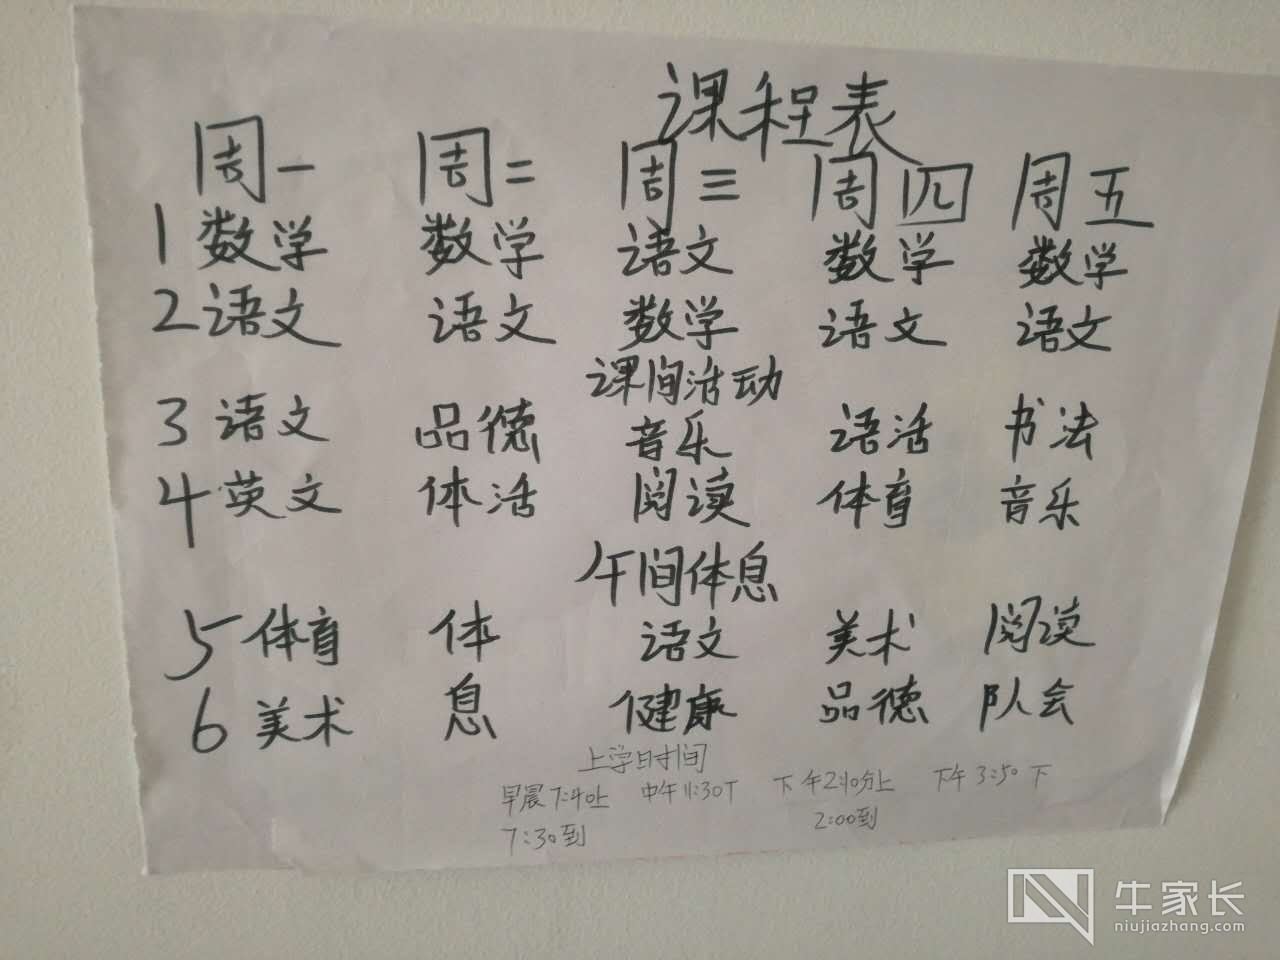 课程表
周一 周二 周三 周四 周五
1 数学 数学 语文 数学 数学
2 语文 语文 数学 语文 语文
课间活动
3 语文 品德 音乐 语活 书法
4 英文 体活 阅读 体育 音乐
午间体息
5 体育 体 语文 美术 阅读
6 美术 息 健康 品德 队会
上学时间
早晨7:40上 中午11:30下 下午2:10分上 下午3:50下
7:30到 2:00到
牛家长
niujiazhang.com